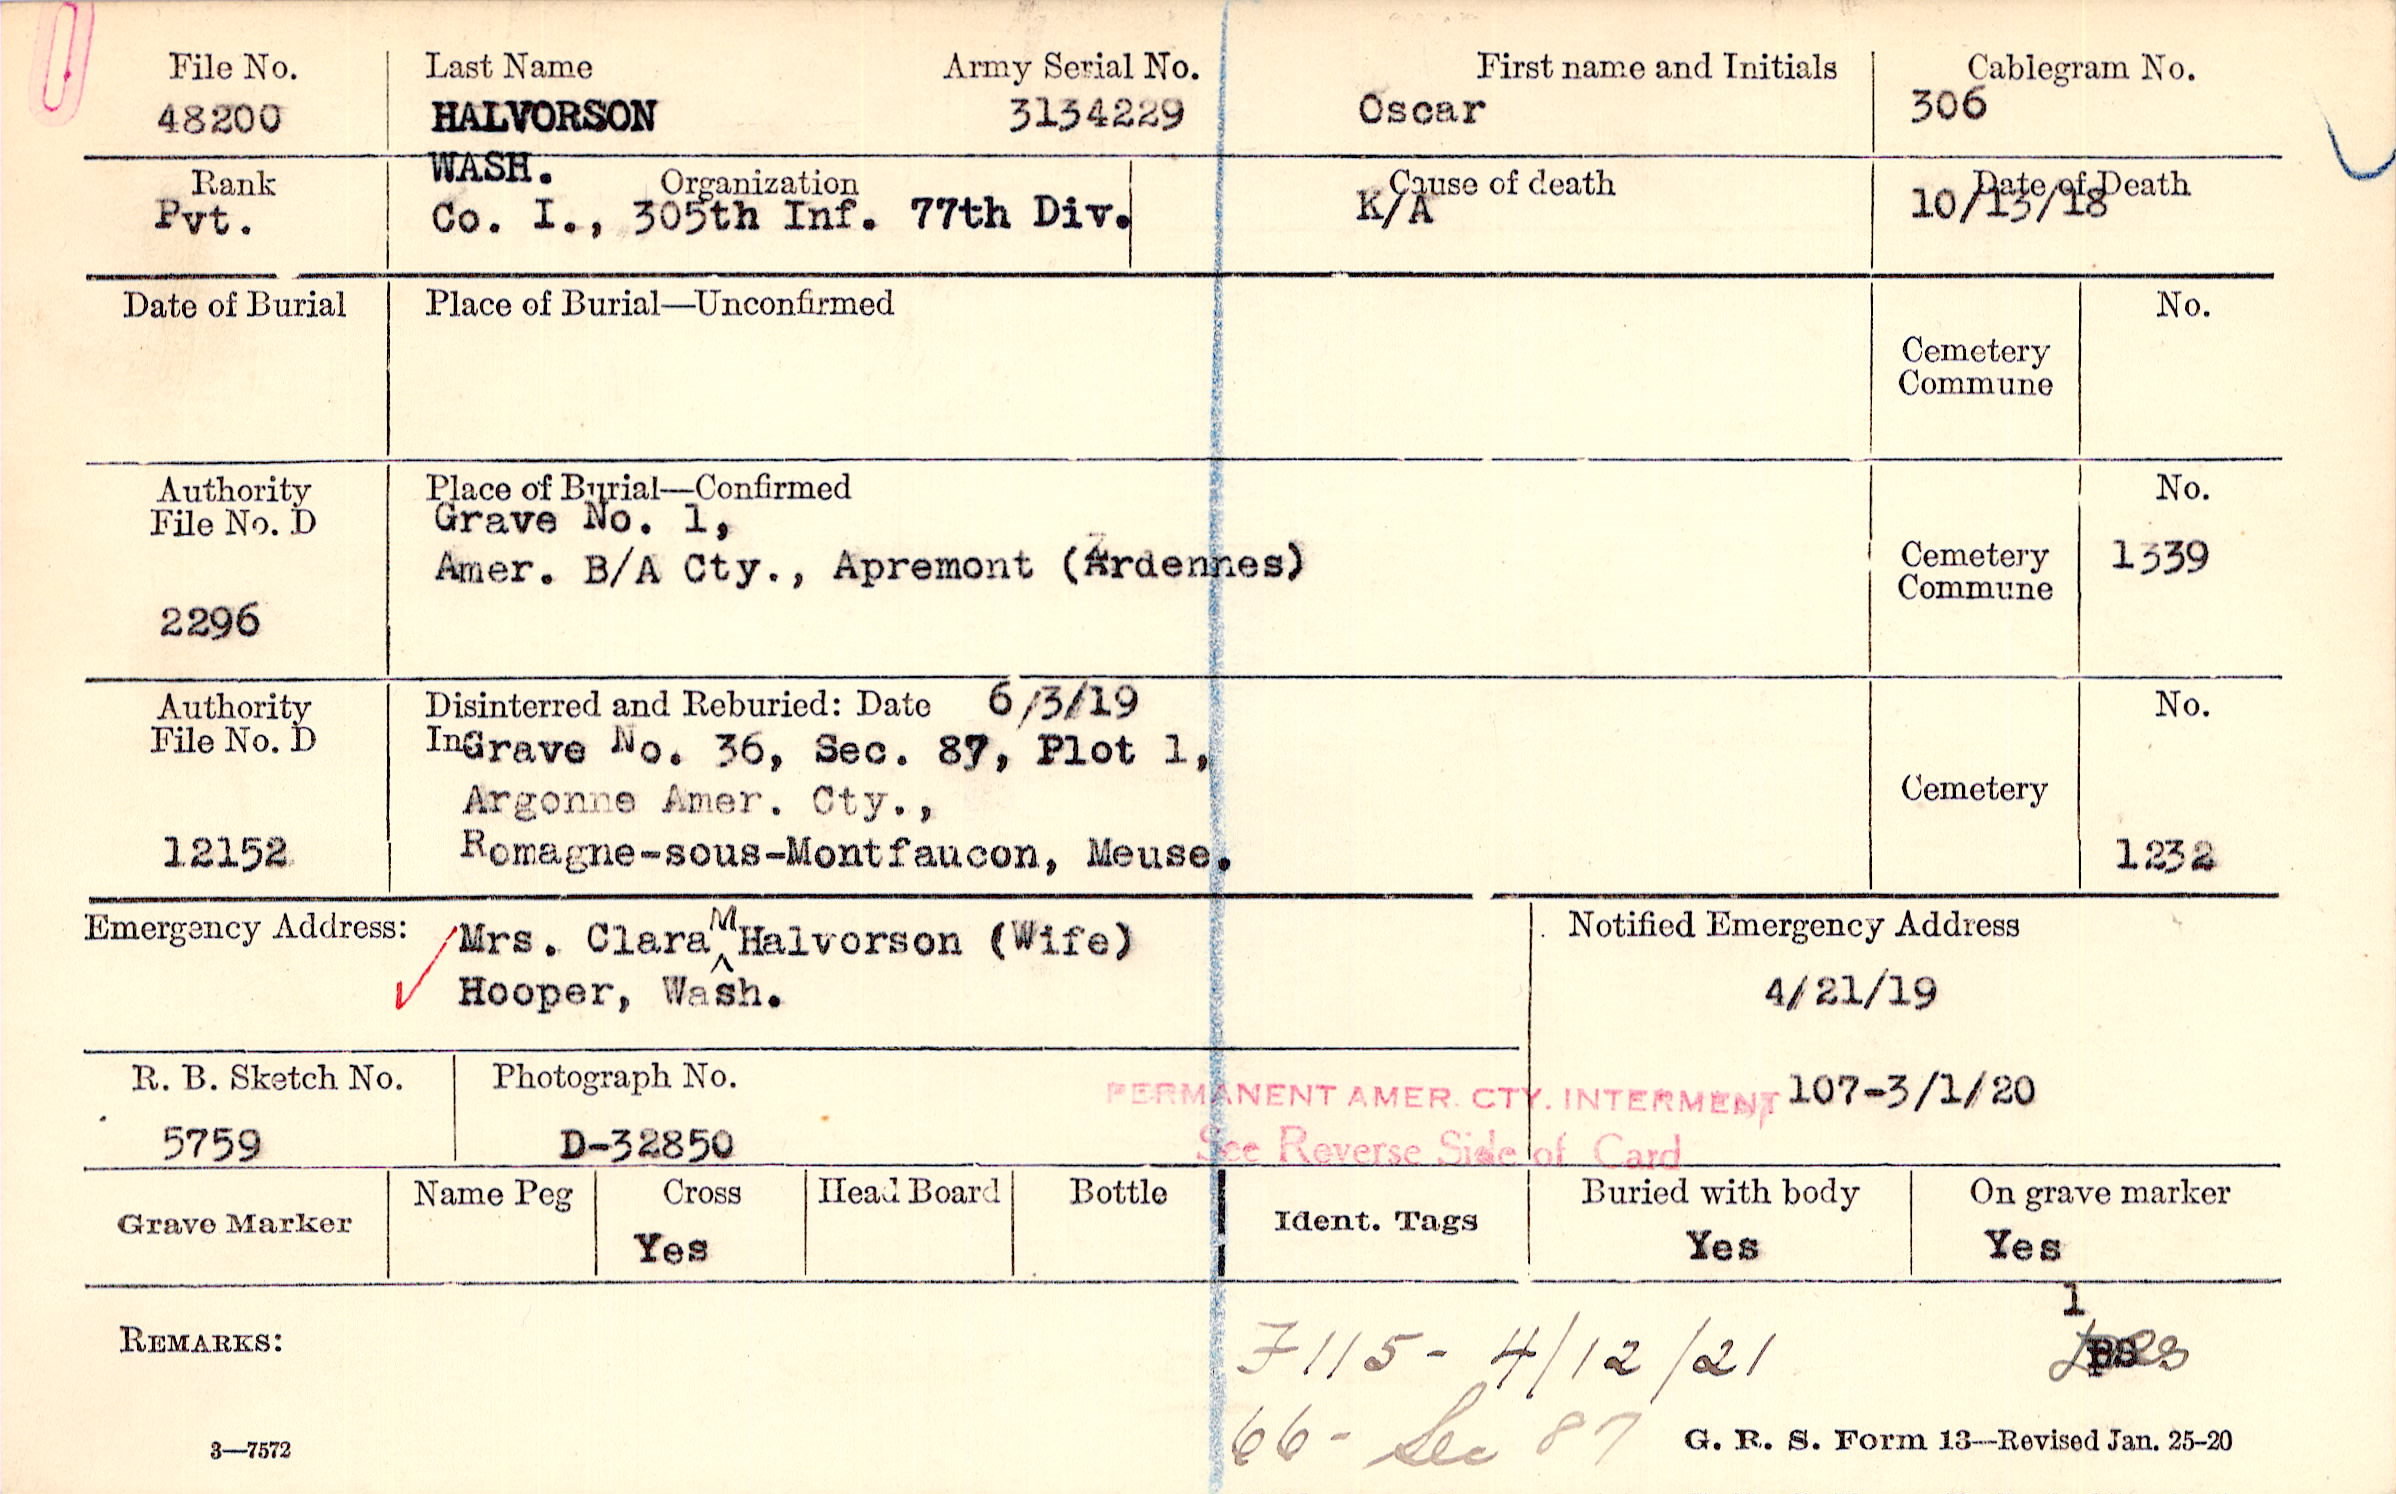 File No. Last Name Army Serial No. First name and Initials Cablegram No.
48200 HALVORSON 3134229 Oscar 306
WASH.
Rank Organization Cause of death Date of Death
Pvt. Co. I., 305th Inf. 77th Div. K/A 10/13/18
Date of Burial Place of Burial—Unconfirmed No.
Cemetery
Commune
Authority Place of Burial—Confirmed No.
File No. D Grave No. 1,
Amer. B/A Cty., Apremont (Ardennes) Cemetery 1339
Commune
2296
Authority Disinterred and Reburied: Date 6/3/19 No.
File No. D In Grave No. 36, Sec. 87, Plot 1,
Argonne Amer. Cty., Cemetery
12152 Romagne-sous-Montfaucon, Meuse. 1232
Emergency Address: Mrs. Clara M Halvorson (Wife) Notified Emergency Address
Hooper, Wash. 4/21/19
R. B. Sketch No. Photograph No. PERMANENT AMER. CTY. INTERMENT 107-3/1/20
5759 D-32850 See Reverse Side of Card
Grave Marker Name Peg Cross Head Board Bottle Ident. Tags Buried with body On grave marker
Yes Yes Yes
1
REMARKS: F115- 4/12/21
66- Sec 87
3—7572 G. R. S. Form 13—Revised Jan. 25-20